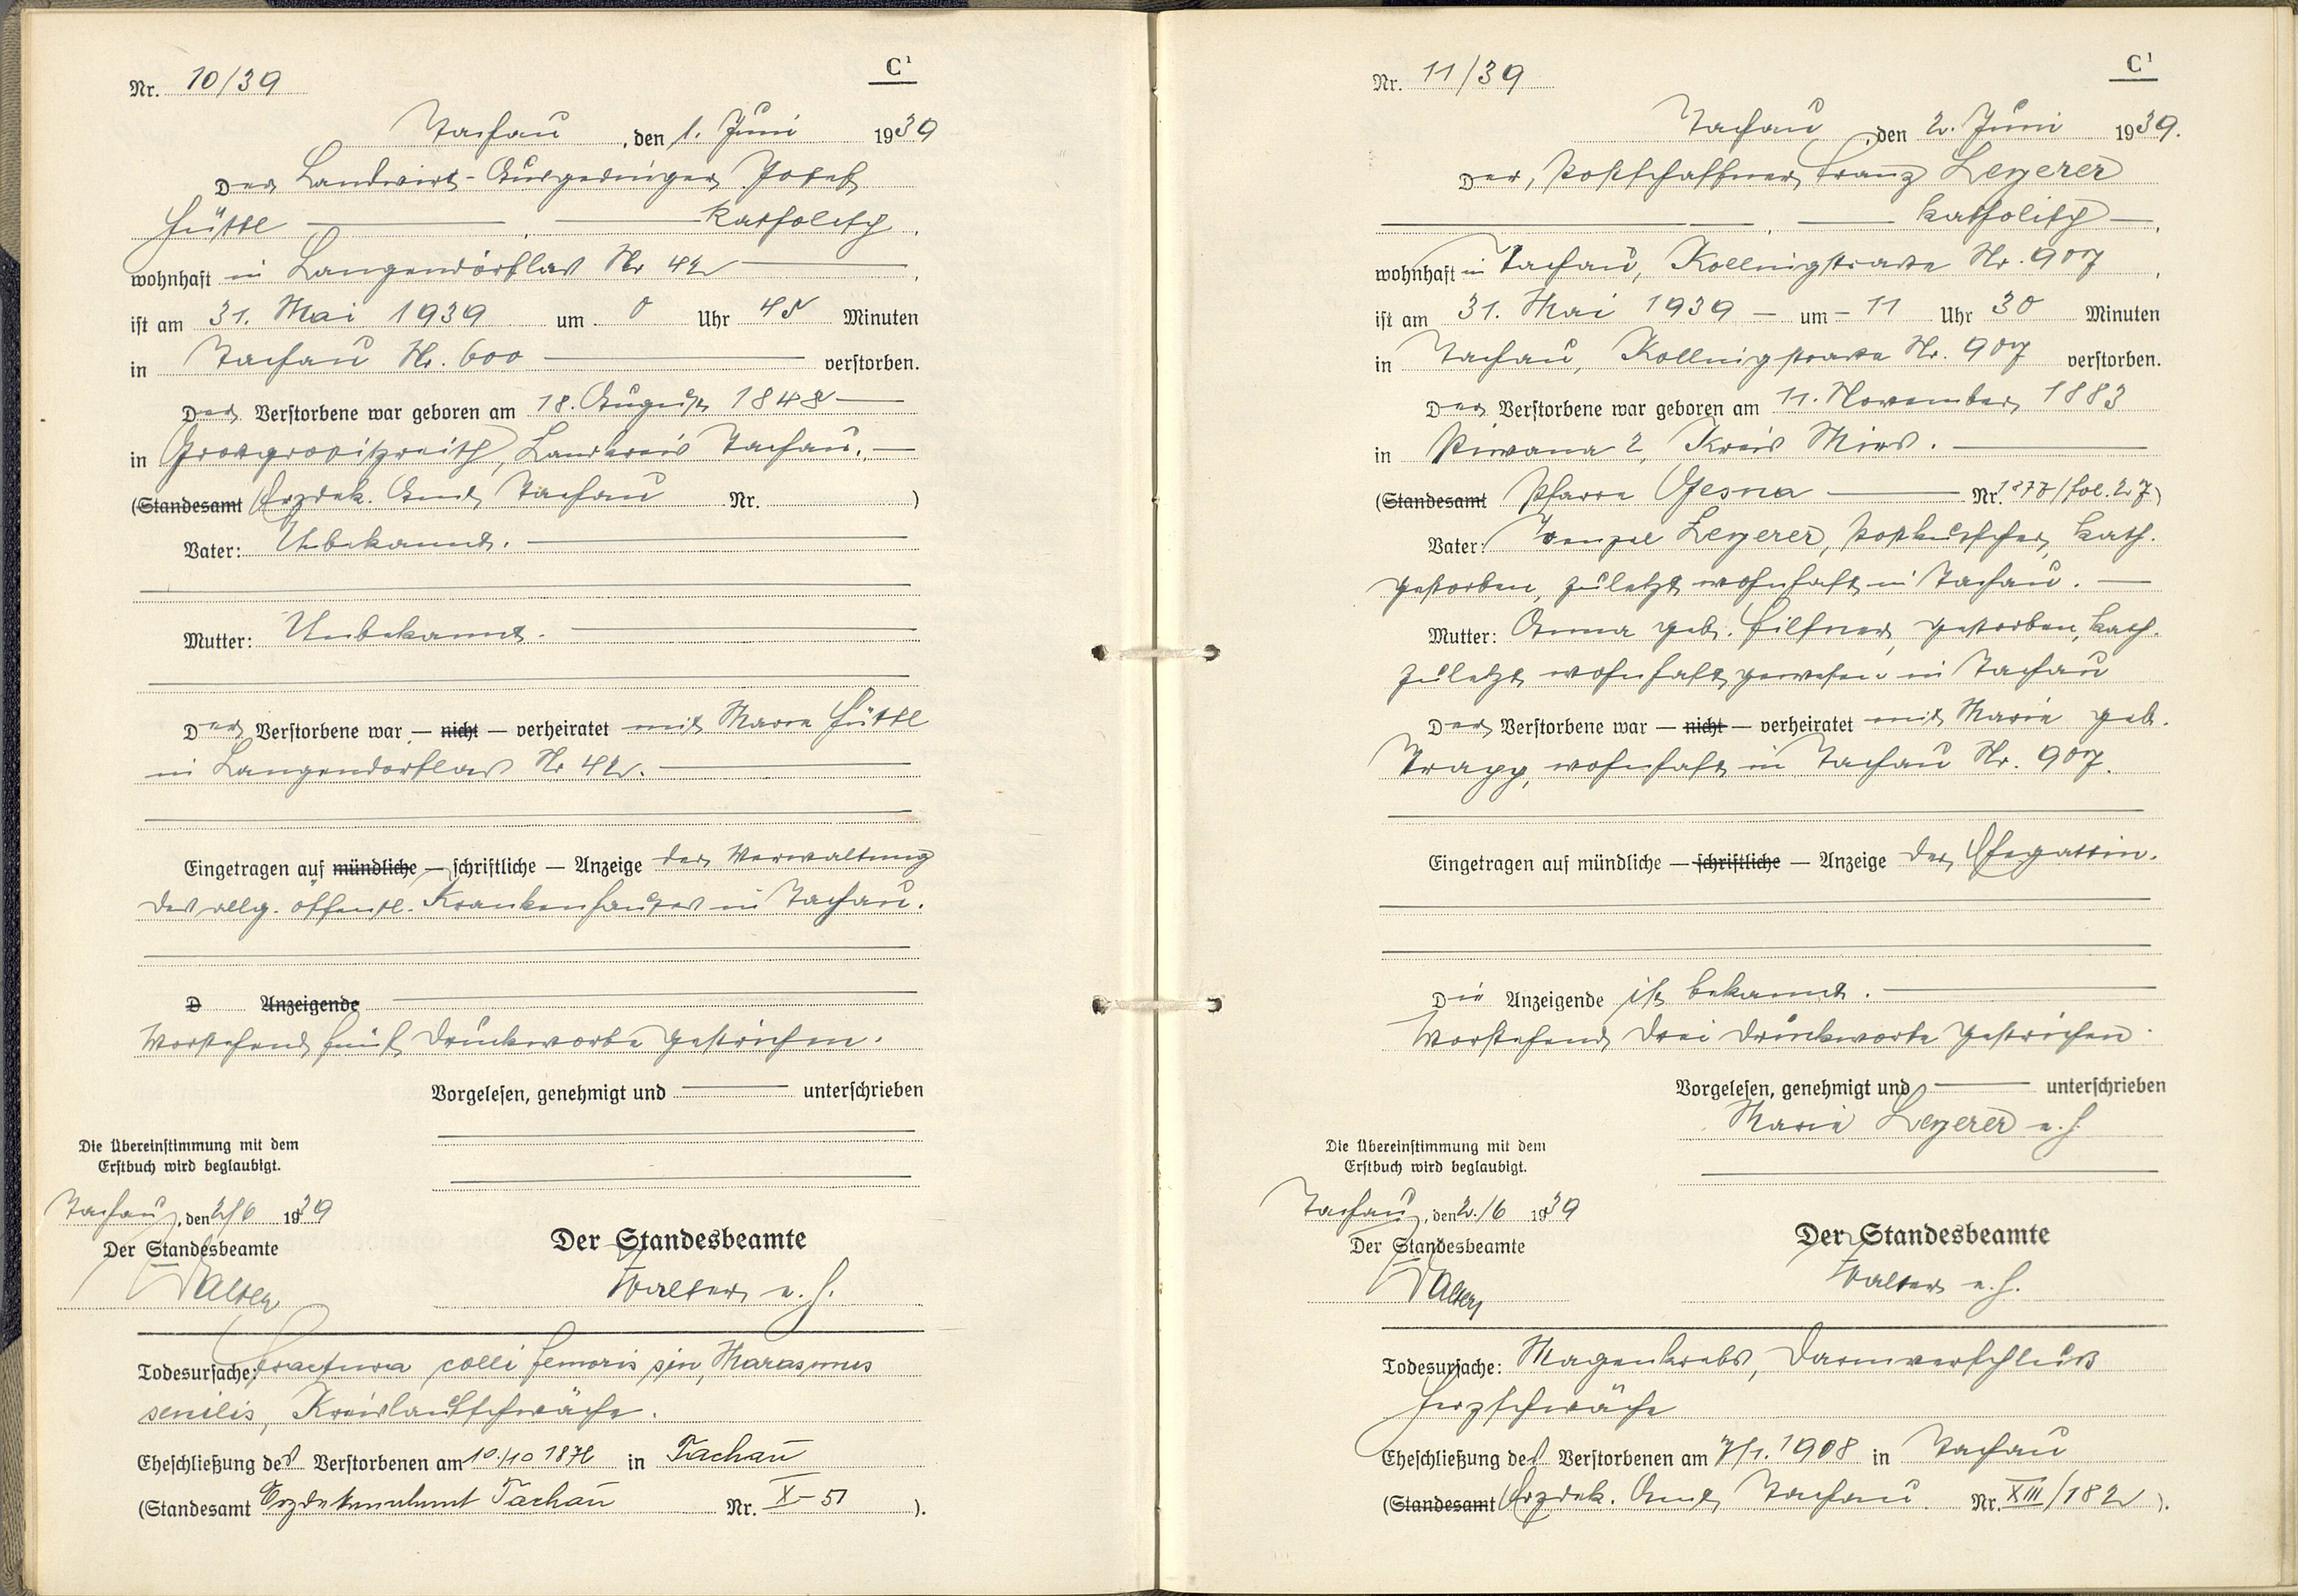 C¹
Nr. 10/39
Tachau, den 1. Juni 1939
Der Landwirt-Ausgedinger Josef
Hüttl katholisch.
wohnhaft in Langendörflas Nr 42,
ist am 31. Mai 1939 um 0 Uhr 45 Minuten
in Tachau Nr. 600 verstorben.
Der Verstorbene war geboren am 18. August 1848
in Landkreis Tachau.
(Standesamt Erzdek. Amt Tachau Nr. )
Vater: Unbekannt.
Mutter: Unbekannt.
Der Verstorbene war — nicht — verheiratet mit Marie Hüttl
in Langendorflas Nr 42.
Eingetragen auf mündliche — schriftliche — Anzeige der Verwaltung
des allg. öffentl. Krankenhauses in Tachau.
D Anzeigende
Vorstehend fünf Druckworte gestrichen.
Vorgelesen, genehmigt und unterschrieben
Die Übereinstimmung mit dem
Erstbuch wird beglaubigt.
Tachau, den 2/6 1939
Der Standesbeamte
Walter
Der Standesbeamte
Walter e.h.
Todesursache: Fractura colli femoris sin, Marasmus
senilis, Kreislaufschwäche.
Eheschließung des Verstorbenen am 10./10 1876 in Tachau
(Standesamt Erzdekanalamt Tachau Nr. X-51 ).
C¹
Nr. 11/39
Tachau, den 2. Juni 1939.
Der, Postschaffner Franz Leyerer
katholisch
wohnhaft in Tachau, Kollnigstrasse Nr. 907,
ist am 31. Mai 1939 — um — 11 Uhr 30 Minuten
in Tachau, Kollnigstrasse Nr. 907 verstorben.
Der Verstorbene war geboren am 11. November 1883
in Piwana 2, Kreis Mies.
(Standesamt Pfarre Gesna Nr. 1877/fol. 27)
Vater: Wenzel Leyerer, Postkutscher, kath.
gestorben, zuletzt wohnhaft in Tachau.
Mutter: Anna geb. gestorben, kath.
zuletzt wohnhaft gewesen in Tachau
Der Verstorbene war — nicht — verheiratet mit Marie geb.
Trapp, wohnhaft in Tachau Nr. 907.
Eingetragen auf mündliche — schriftliche — Anzeige der Ehegattin.
Die Anzeigende ist bekannt.
Vorstehend drei Druckworte gestrichen.
Vorgelesen, genehmigt und unterschrieben
Marie Leyerer e.h.
Die Übereinstimmung mit dem
Erstbuch wird beglaubigt.
Tachau, den 2./6 1939
Der Standesbeamte
Walter
Der Standesbeamte
Walter e.h.
Todesursache: Magenkrebs, Darmverschluß
Herzschwäche
Eheschließung des Verstorbenen am 7/1. 1908 in Tachau
(Standesamt Erzdek. Amt Tachau. Nr. XIII/182 ).